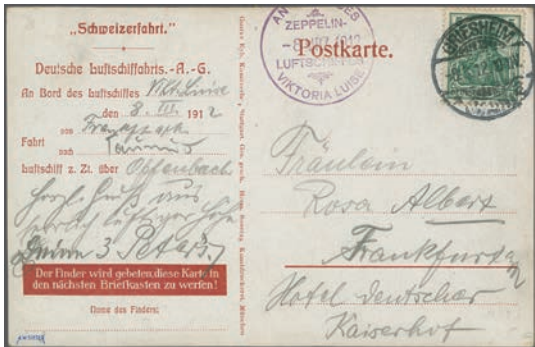 „Schweizerfahrt."
Deutsche Luftschiffahrts.-A.-G.
An Bord des Luftschiffes Vikt. Luise
den 8. III. 1912
Fahrt von Frankfurt
nach Taunus
Luftschiff z. Zt. über Offenbach
Herzl. Gruß aus
luftiger Höhe
Der Finder wird gebeten, diese Karte in
den nächsten Briefkasten zu werfen!
Name des Finders:
ZEPPELIN-
-8. MRZ. 1912
LUFTSCHIFFES
VIKTORIA LUISE
Postkarte.
GRIESHEIM
Fräulein
Rosa Albert
Frankfurt a/M
Hotel Deutscher
Kaiserhof